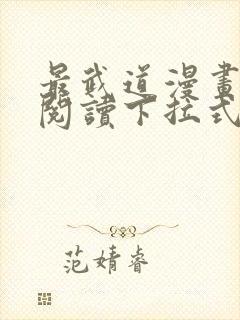 最武道漫畫
閱讀下拉式
范婧睿